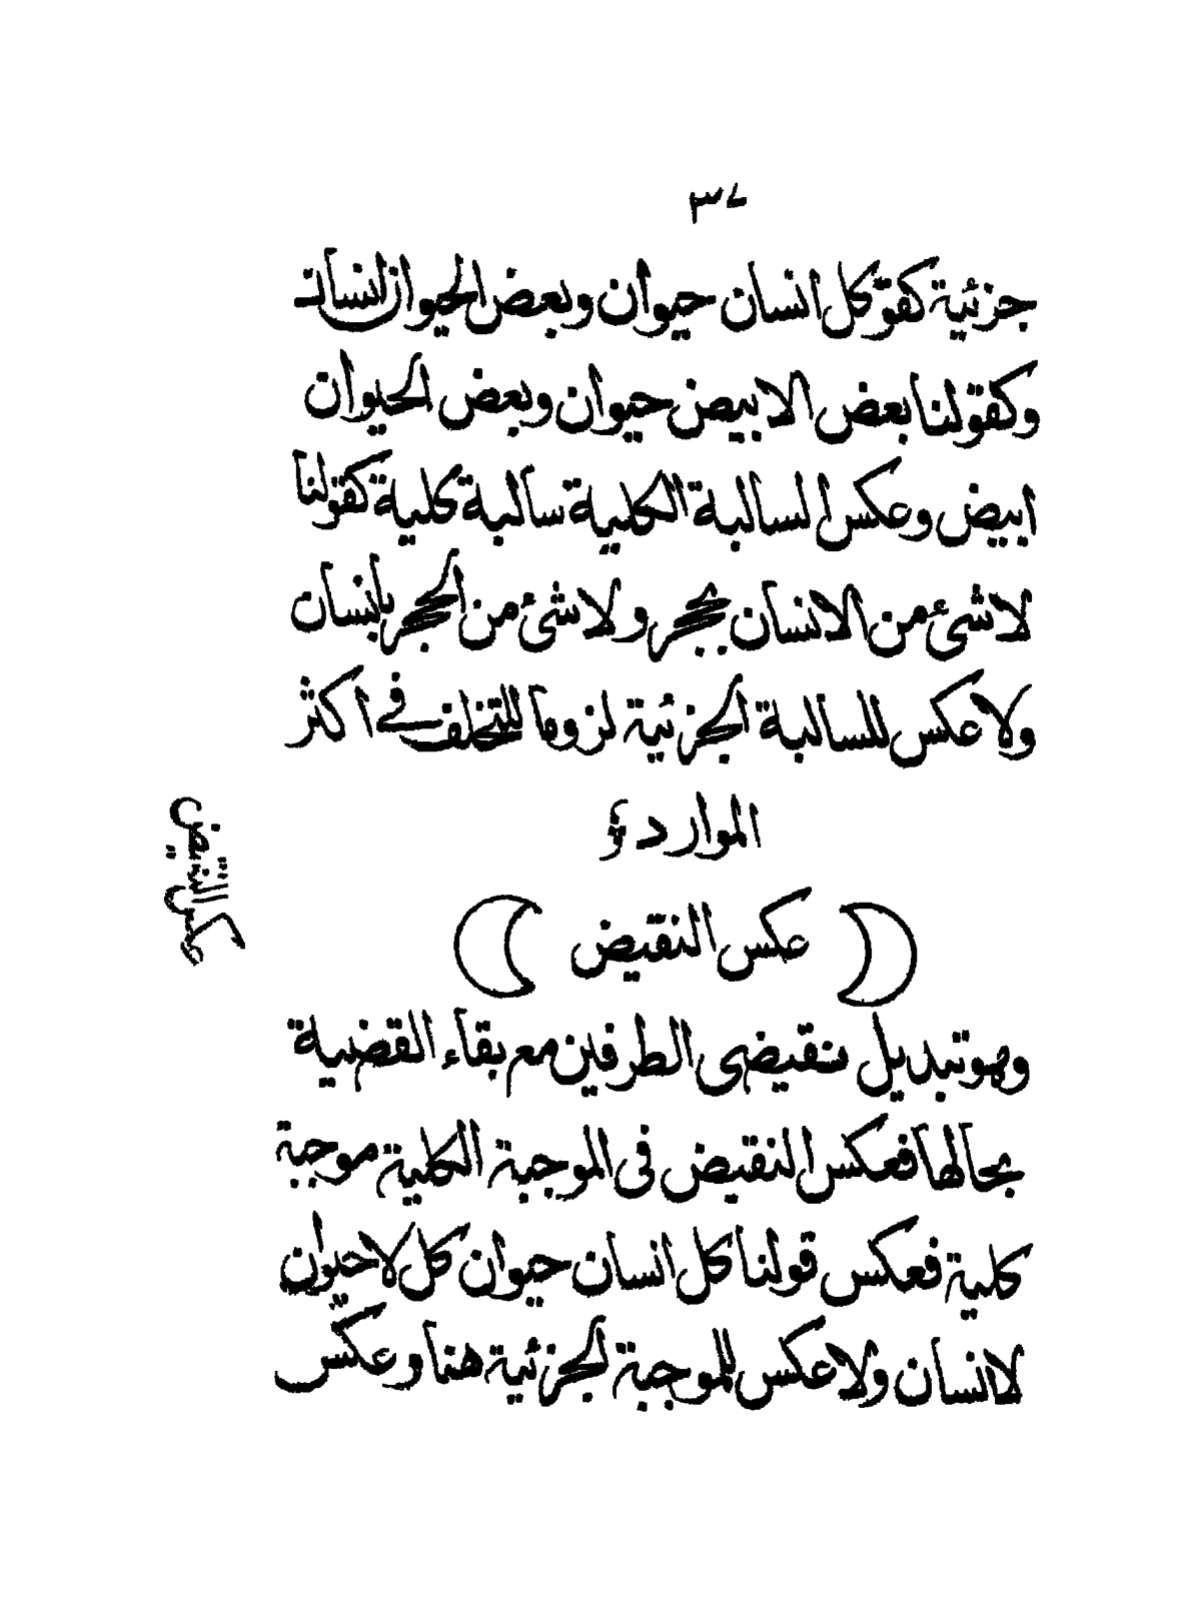 ٣٧
جزئية كقوّ كل انسان حيوان وبعض الحيوان انسان
وكقوّلنا بعض الابيض حيوان وبعض الحيوان
ابيض وعكس السالبة الكلية سالبة كلية كقولنا
لاشئ من الانسان بحجر ولاشئ من الحجر بانسان
ولاعكس للسالبة الجزئية لزوما للتخلف في اكثر
الموارد
عكس النقيض
عكس النقيض
وهو تبديل نقيضى الطرفين مع بقاء القضية
بحالها فعكس النقيض فى الموجبة الكلية موجبة
كلية فعكس قولنا كل انسان حيوان كل لاحيوان
لانسان ولاعكس للموجبة الجزئية هنا وعكس